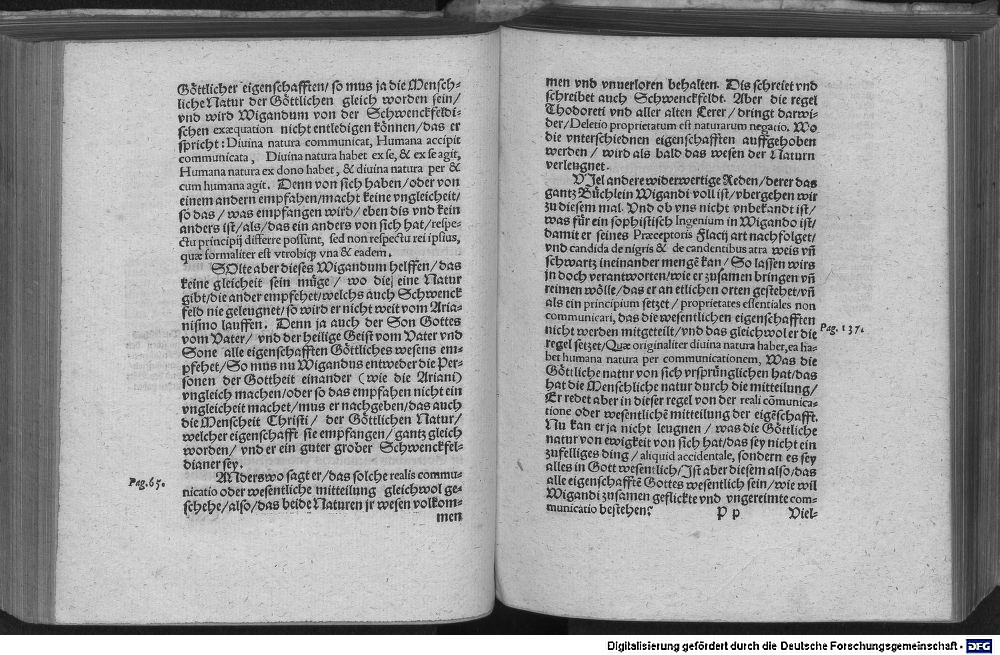 Göttlicher eigenschafften/ so mus ja die Mensch-
liche Natur der Göttlichen gleich worden sein/
vnd wird Wigandum von der Schwenckfeldi-
schen exæquation nicht entledigen können/das er
spricht: Diuina natura communicat, Humana accipit
communicata, Diuina natura habet ex se, & ex se agit,
Humana natura ex dono habet, & diuina natura per &
cum humana agit. Denn von sich haben/oder von
einem andern empfahen/macht keine vngleicheit/
so das/was empfangen wird/eben dis vnd kein
anders ist/als/das ein anders von sich hat/respe-
ctu principij differre possunt, sed non respectu rei ipsius,
quæ formaliter est vtrobiq; vna & eadem.
SOlte aber dieses Wigandum helffen/das
keine gleicheit sein müge/ wo die eine Natur
gibt/die ander empfehet/welchs auch Schwenck
feld nie geleugnet/so wird er nicht weit vom Aria-
nismo lauffen. Denn ja auch der Son Gottes
vom Vater/ vnd der heilige Geist vom Vater vnd
Sone alle eigenschafften Göttliches wesens em-
pfehet/So mus nu Wigandus entweder die Per-
sonen der Gottheit einander (wie die Ariani)
vngleich machen/oder so das empfahen nicht ein
vngleicheit machet/mus er nachgeben/das auch
die Menscheit Christi/ der Göttlichen Natur/
welcher eigenschafft sie empfangen/gantz gleich
worden/ vnd er ein guter grober Schwenckfel-
dianer sey.
Pag. 65.
ANderswo sagt er/das solche realis commu-
nicatio oder wesentliche mitteilung gleichwol ge-
schehe/also/das beide Naturen jr wesen volkom-
men
men vnd vnuerloren behalten. Dis schreiet vnd
schreibet auch Schwenckfeldt. Aber die regel
Thodoreti vnd aller alten Lerer/dringt darwi-
der/Deletio proprietatum est naturarum negatio. Wo
die vnterschiednen eigenschafften auffgehoben
werden/ wird als bald das wesen der Naturn
verleugnet.
VIel andere widerwertige Reden/derer das
gantz Büchlein Wigandi voll ist/vbergehen wir
zu diesem mal. Vnd ob vns nicht vnbekandt ist/
was für ein sophistisch Ingenium in Wigando ist/
damit er seines Præceptoris Flacij art nachfolget/
vnd candida de nigris & de candentibus atra weis vñ
schwartz ineinander mengẽ kan/ So lassen wirs
in doch verantworten/wie er zusamen bringen vñ
reimen wölle/das er an etlichen orten gestehet/vñ
als ein principium setzet/proprietates essentiales non
communicari, das die wesentlichen eigenschafften
nicht werden mitgeteilt/vnd das gleichwol er die
Pag. 137.
regel setzet/Quæ originaliter diuina natura habet, ea ha-
bet humana natura per communicationem, Was die
Göttliche natur von sich vrsprünglichen hat/das
hat die Menschliche natur durch die mitteilung/
Er redet aber in dieser regel von der reali cõmunica-
tione oder wesentlichẽ mitteilung der eigẽschafft.
Nu kan er ja nicht leugnen/ was die Göttliche
natur von ewigkeit von sich hat/das sey nicht ein
zufelliges ding/aliquid accidentale, sondern es sey
alles in Gott wesentlich/Ist aber diesem also/das
alle eigenschafftẽ Gottes wesentlich sein/wie wil
Wigandi zusamen geflickte vnd vngereimte com-
municatio bestehen?
P p
Viel-
Digitalisierung gefördert durch die Deutsche Forschungsgemeinschaft - DFG